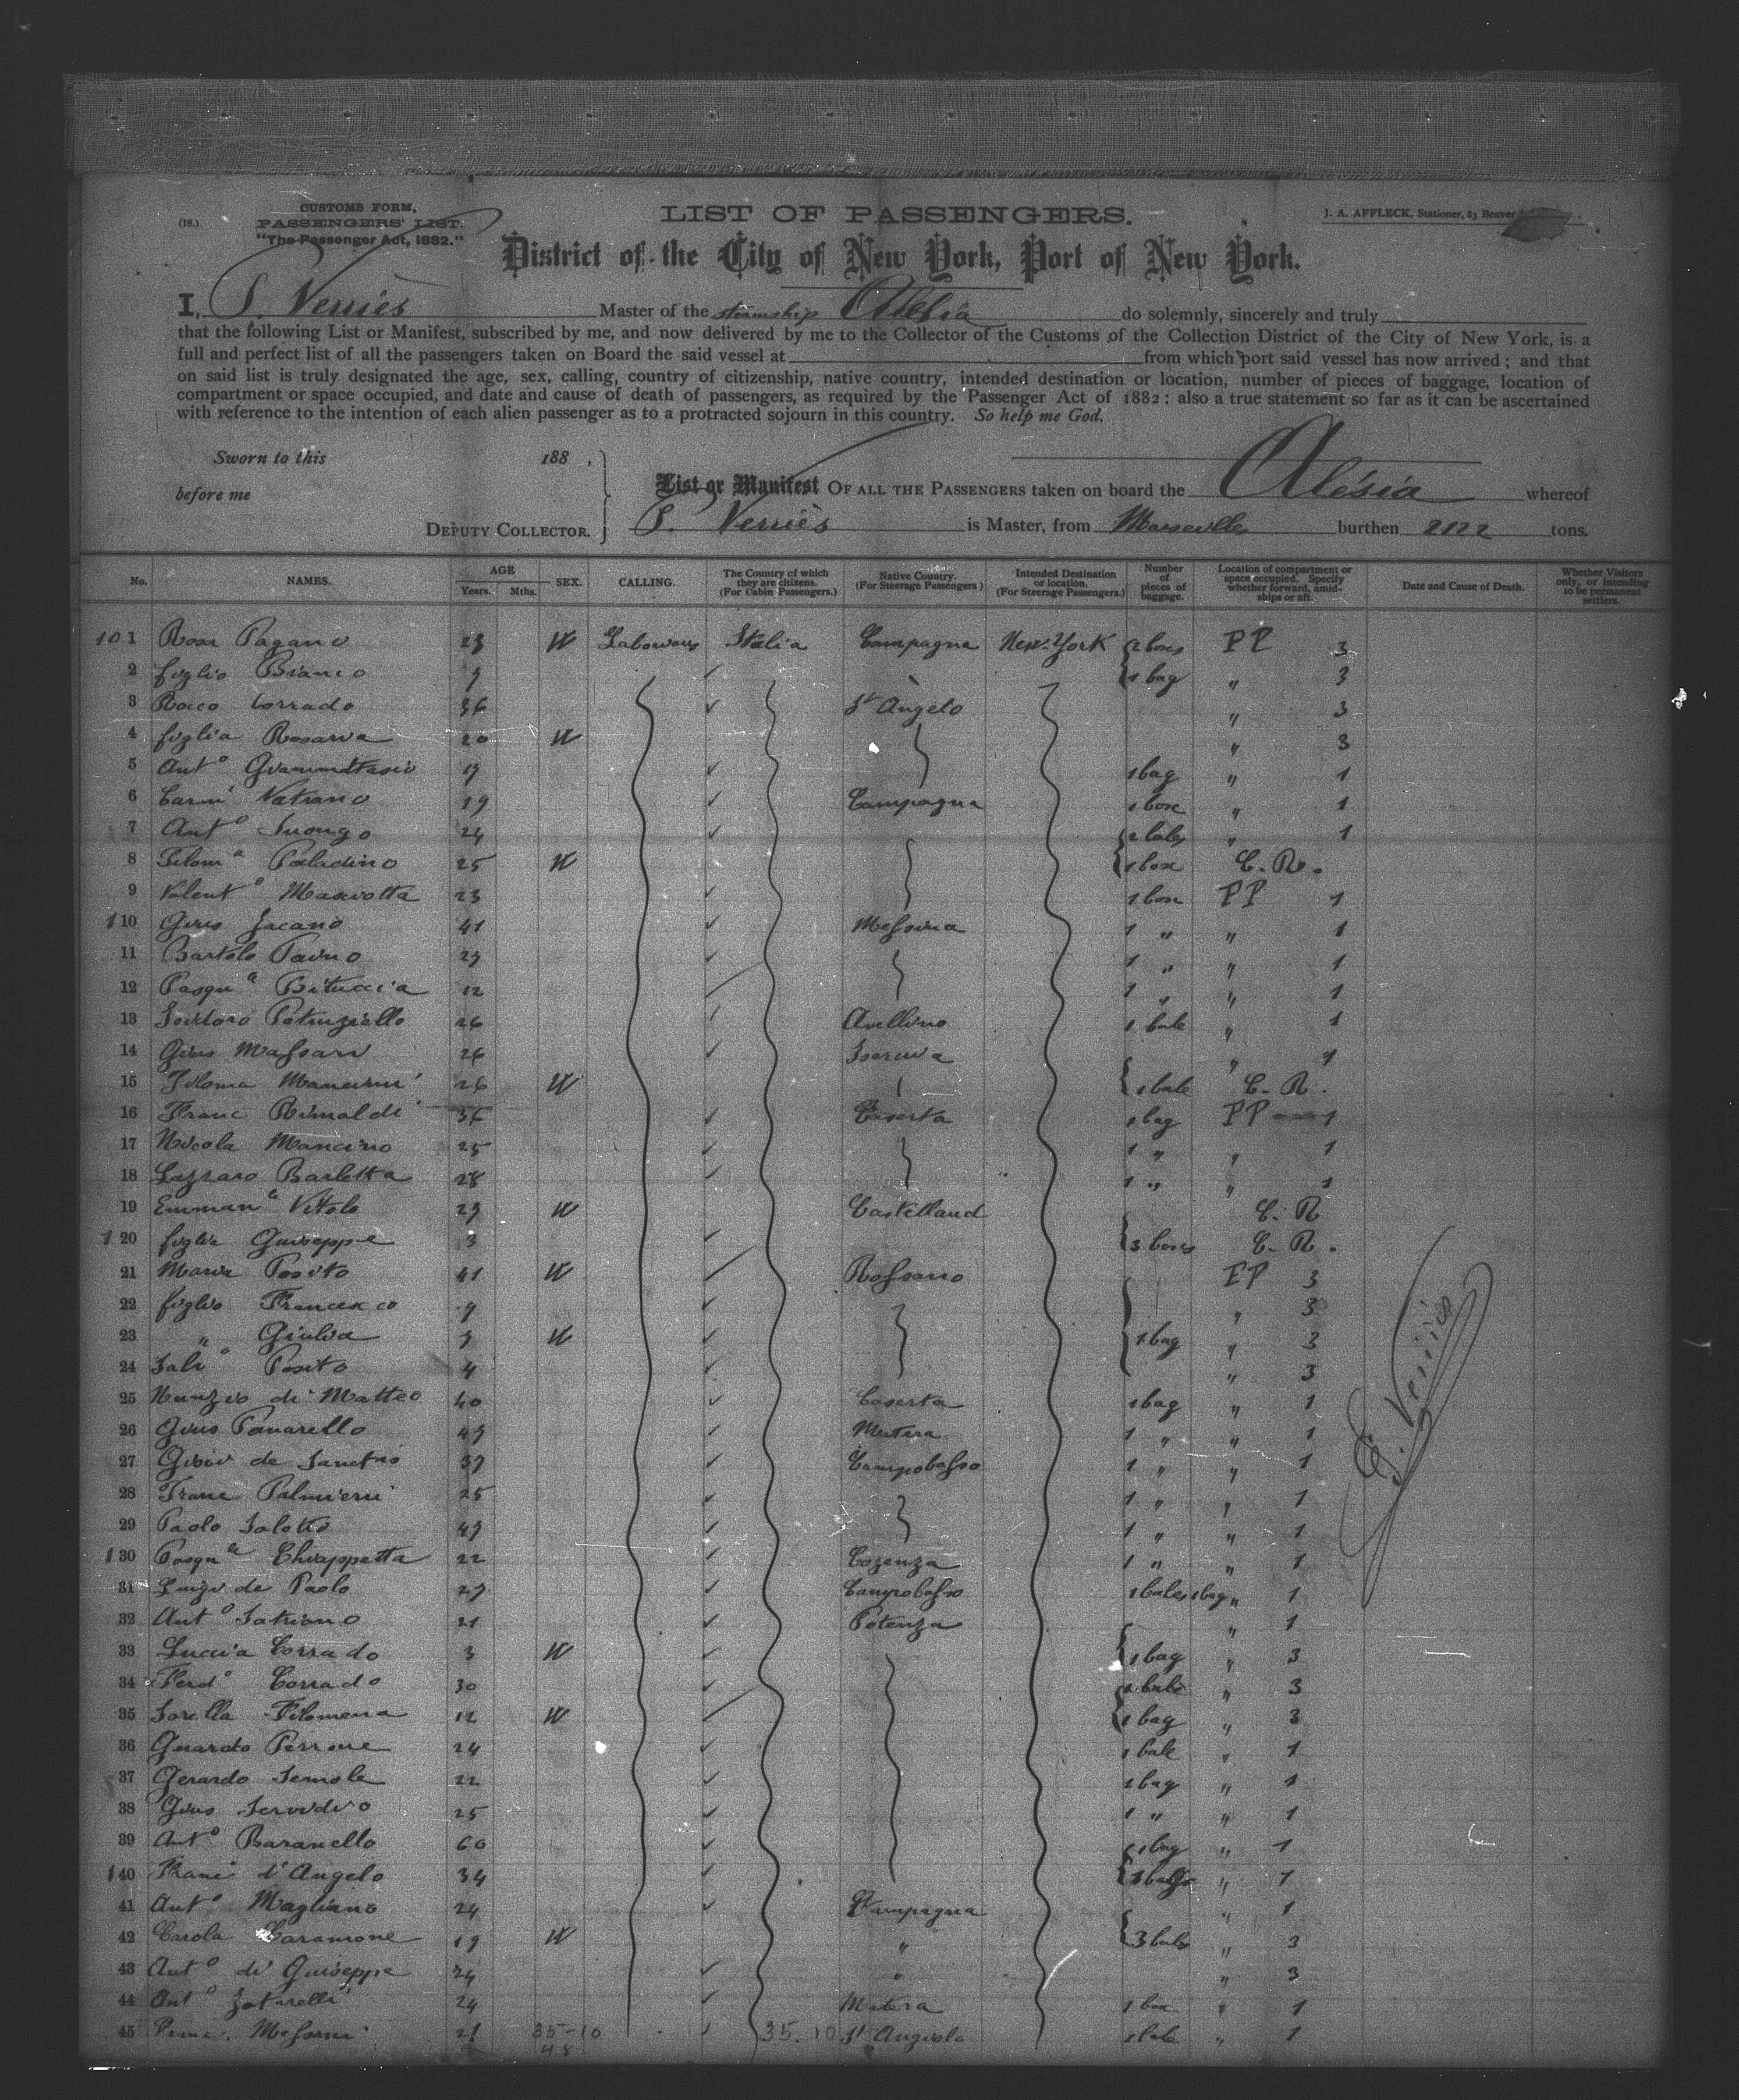 (18.)
CUSTOMS FORM,
PASSENGERS' LIST.
"The Passenger Act, 1882."
LIST OF PASSENGERS.
J. A. AFFLECK, Stationer, 83 Beaver
District of the City of New York, Port of New York.
I, P. Verriès Master of the steamship Alésia do solemnly, sincerely and truly
that the following List or Manifest, subscribed by me, and now delivered by me to the Collector of the Customs of the Collection District of the City of New York, is a
full and perfect list of all the passengers taken on Board the said vessel at from which port said vessel has now arrived; and that
on said list is truly designated the age, sex, calling, country of citizenship, native country, intended destination or location, number of pieces of baggage, location of
compartment or space occupied, and date and cause of death of passengers, as required by the Passenger Act of 1882: also a true statement so far as it can be ascertained
with reference to the intention of each alien passenger as to a protracted sojourn in this country. So help me God.
Sworn to this 188 ,
before me
DEPUTY COLLECTOR.
List or Manifest OF ALL THE PASSENGERS taken on board the Alésia whereof
P. Verriès is Master, from Marseille burthen 2122 tons.
No. NAMES. AGE Years. Mths. SEX. CALLING. The Country of which they are citizens. (For Cabin Passengers.) Native Country. (For Steerage Passengers) Intended Destination or location. (For Steerage Passengers.) Number of pieces of baggage. Location of compartment or space occupied. Specify whether forward, amidships or aft. Date and Cause of Death. Whether Visitors only, or intending to be permanent settlers.
101 Rosa Pagano 23 W Labourers Italia Campagna New-York 2 boxes PP 3
2 figlio Bianco 1 bag " 3
3 Rocco Corrado 36 St Angelo " 3
4 figlia Rosaria 20 W " 3
5 Ant° 1 bag " 1
6 Carm Natrano 19 Campagna 1 box " 1
7 Ant° Suongo 24 2 bales " 1
8 Filom a Paladino 25 W 1 box C. R.
9 Valent° Mascotta 23 1 box PP 1
110 Gius Jacano 41 Messina 1 " " 1
11 Bartolo Paino 29 1 " " 1
12 Pasqu a 12 1 " " 1
13 Isidoro Petruziello 26 Avellino 1 bale " 1
14 Gius Massari 26 Isernia "
15 Filoma Mancini 26 W 1 bale C. R.
16 Franc Rinaldi 36 Caserta 1 bag PP 1
17 Nicola Mancino 25 1 " " 1
18 Lazzaro Barletta 28 1 " " 1
19 Emman a Vitolo 29 W Castelland C. R
120 figlio Guiseppe 3 3 boxes C. R.
21 Maria Posito 41 W Rossano PP 3
22 figlio Francesco 9 " 3
23 " Giulia W 1 bag " 3
24 Salv° Posito 4 " 3
25 Nunzio di Matteo 40 Caserta 1 bag " 1
26 Gius Panarello 49 Matera 1 " " 1
27 de Sanctis 39 Campobasso 1 " " 1
28 Franc Palmieri 25 1 " " 1
29 Paolo Salotto 49 1 " " 1
130 Pasqu le Chiappetta 22 Cozenza 1 " " 1
31 Luigi de Paolo 29 Campobasso 1 bales 1 bag " 1
32 Ant° Satriano 21 Potenza " 1
33 Luccia Corrado 3 W 1 bag " 3
34 Ferd° Corrado 30 1 bale " 3
35 Sorella Filomena 12 W 1 bag " 3
36 Perrone 24 1 bale " 1
37 Gerardo Semola 22 1 bag " 1
38 Gius Servidio 25 1 " " 1
39 Ant° Baranello 60 1 bag " 1
140 Franc d'Angelo 34 " 1
41 Ant° Magliano 24 Campagna " 1
42 Carola Caramone 19 W " 3 bales " 3
43 Ant° di Guiseppe 24 " " 3
44 Ant° Zotarelli 24 Matera 1 box " 1
45 Franc. Messani 21 35-10 35.10 St Angiolo 1 bale " 1
48
P. Verriès